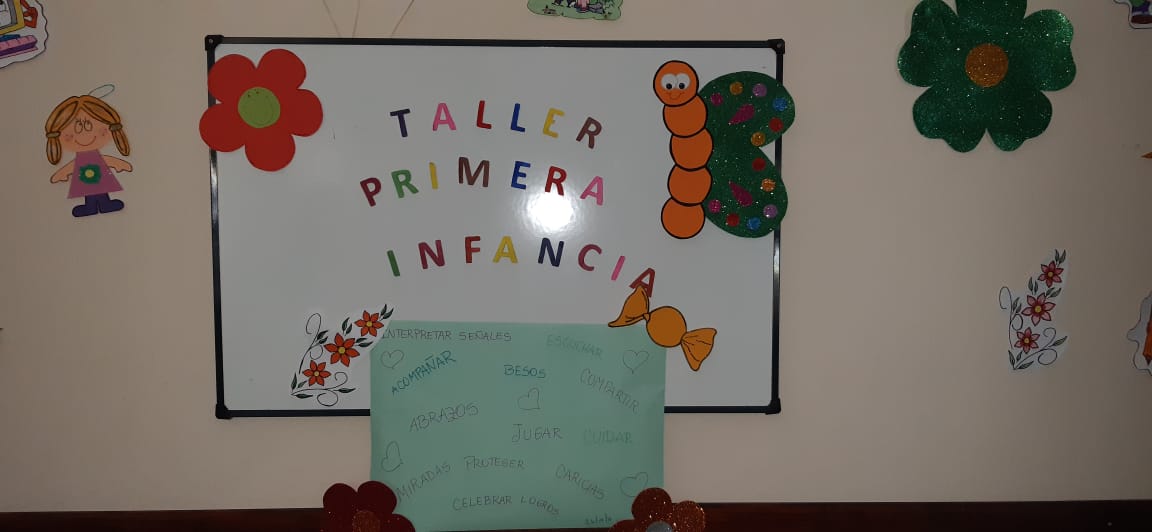 TALLER
PRIMERA
INFANCIA
INTERPRETAR SEÑALES
ESCUCHAR
ACOMPAÑAR
BESOS
COMPARTIR
ABRAZOS
JUGAR
CUIDAR
MIRADAS
PROTEGER
CARICIAS
CELEBRAR LOGROS